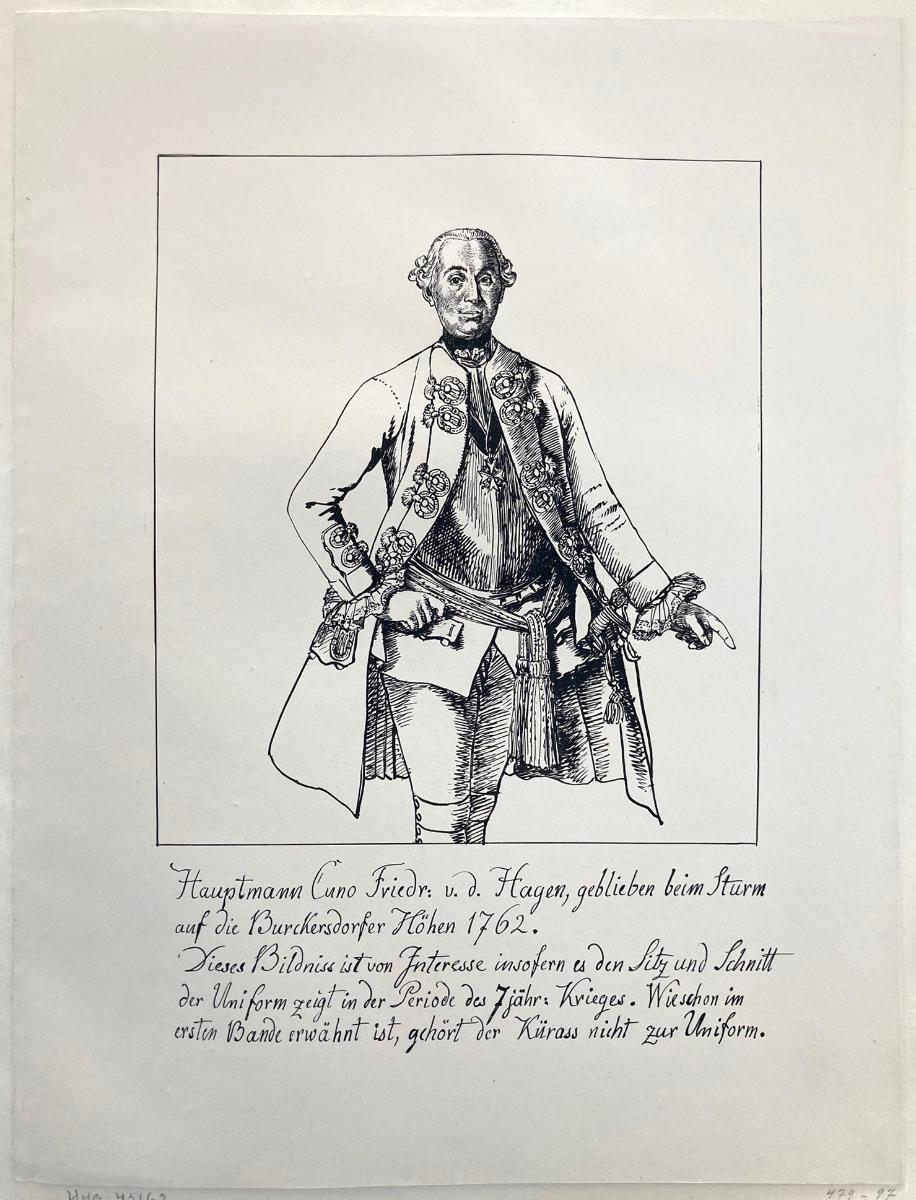 Hauptmann Cuno Friedr: v. d. Hagen, geblieben beim Sturm
auf die Burckersdorfer Höhen 1762.
Dieses Bildniss ist von Interesse insofern es den Sitz und Schnitt
der Uniform zeigt in der Periode des 7jähr: Krieges. Wie schon im
ersten Bande erwähnt ist, gehört der Kürass nicht zur Uniform.
479-97